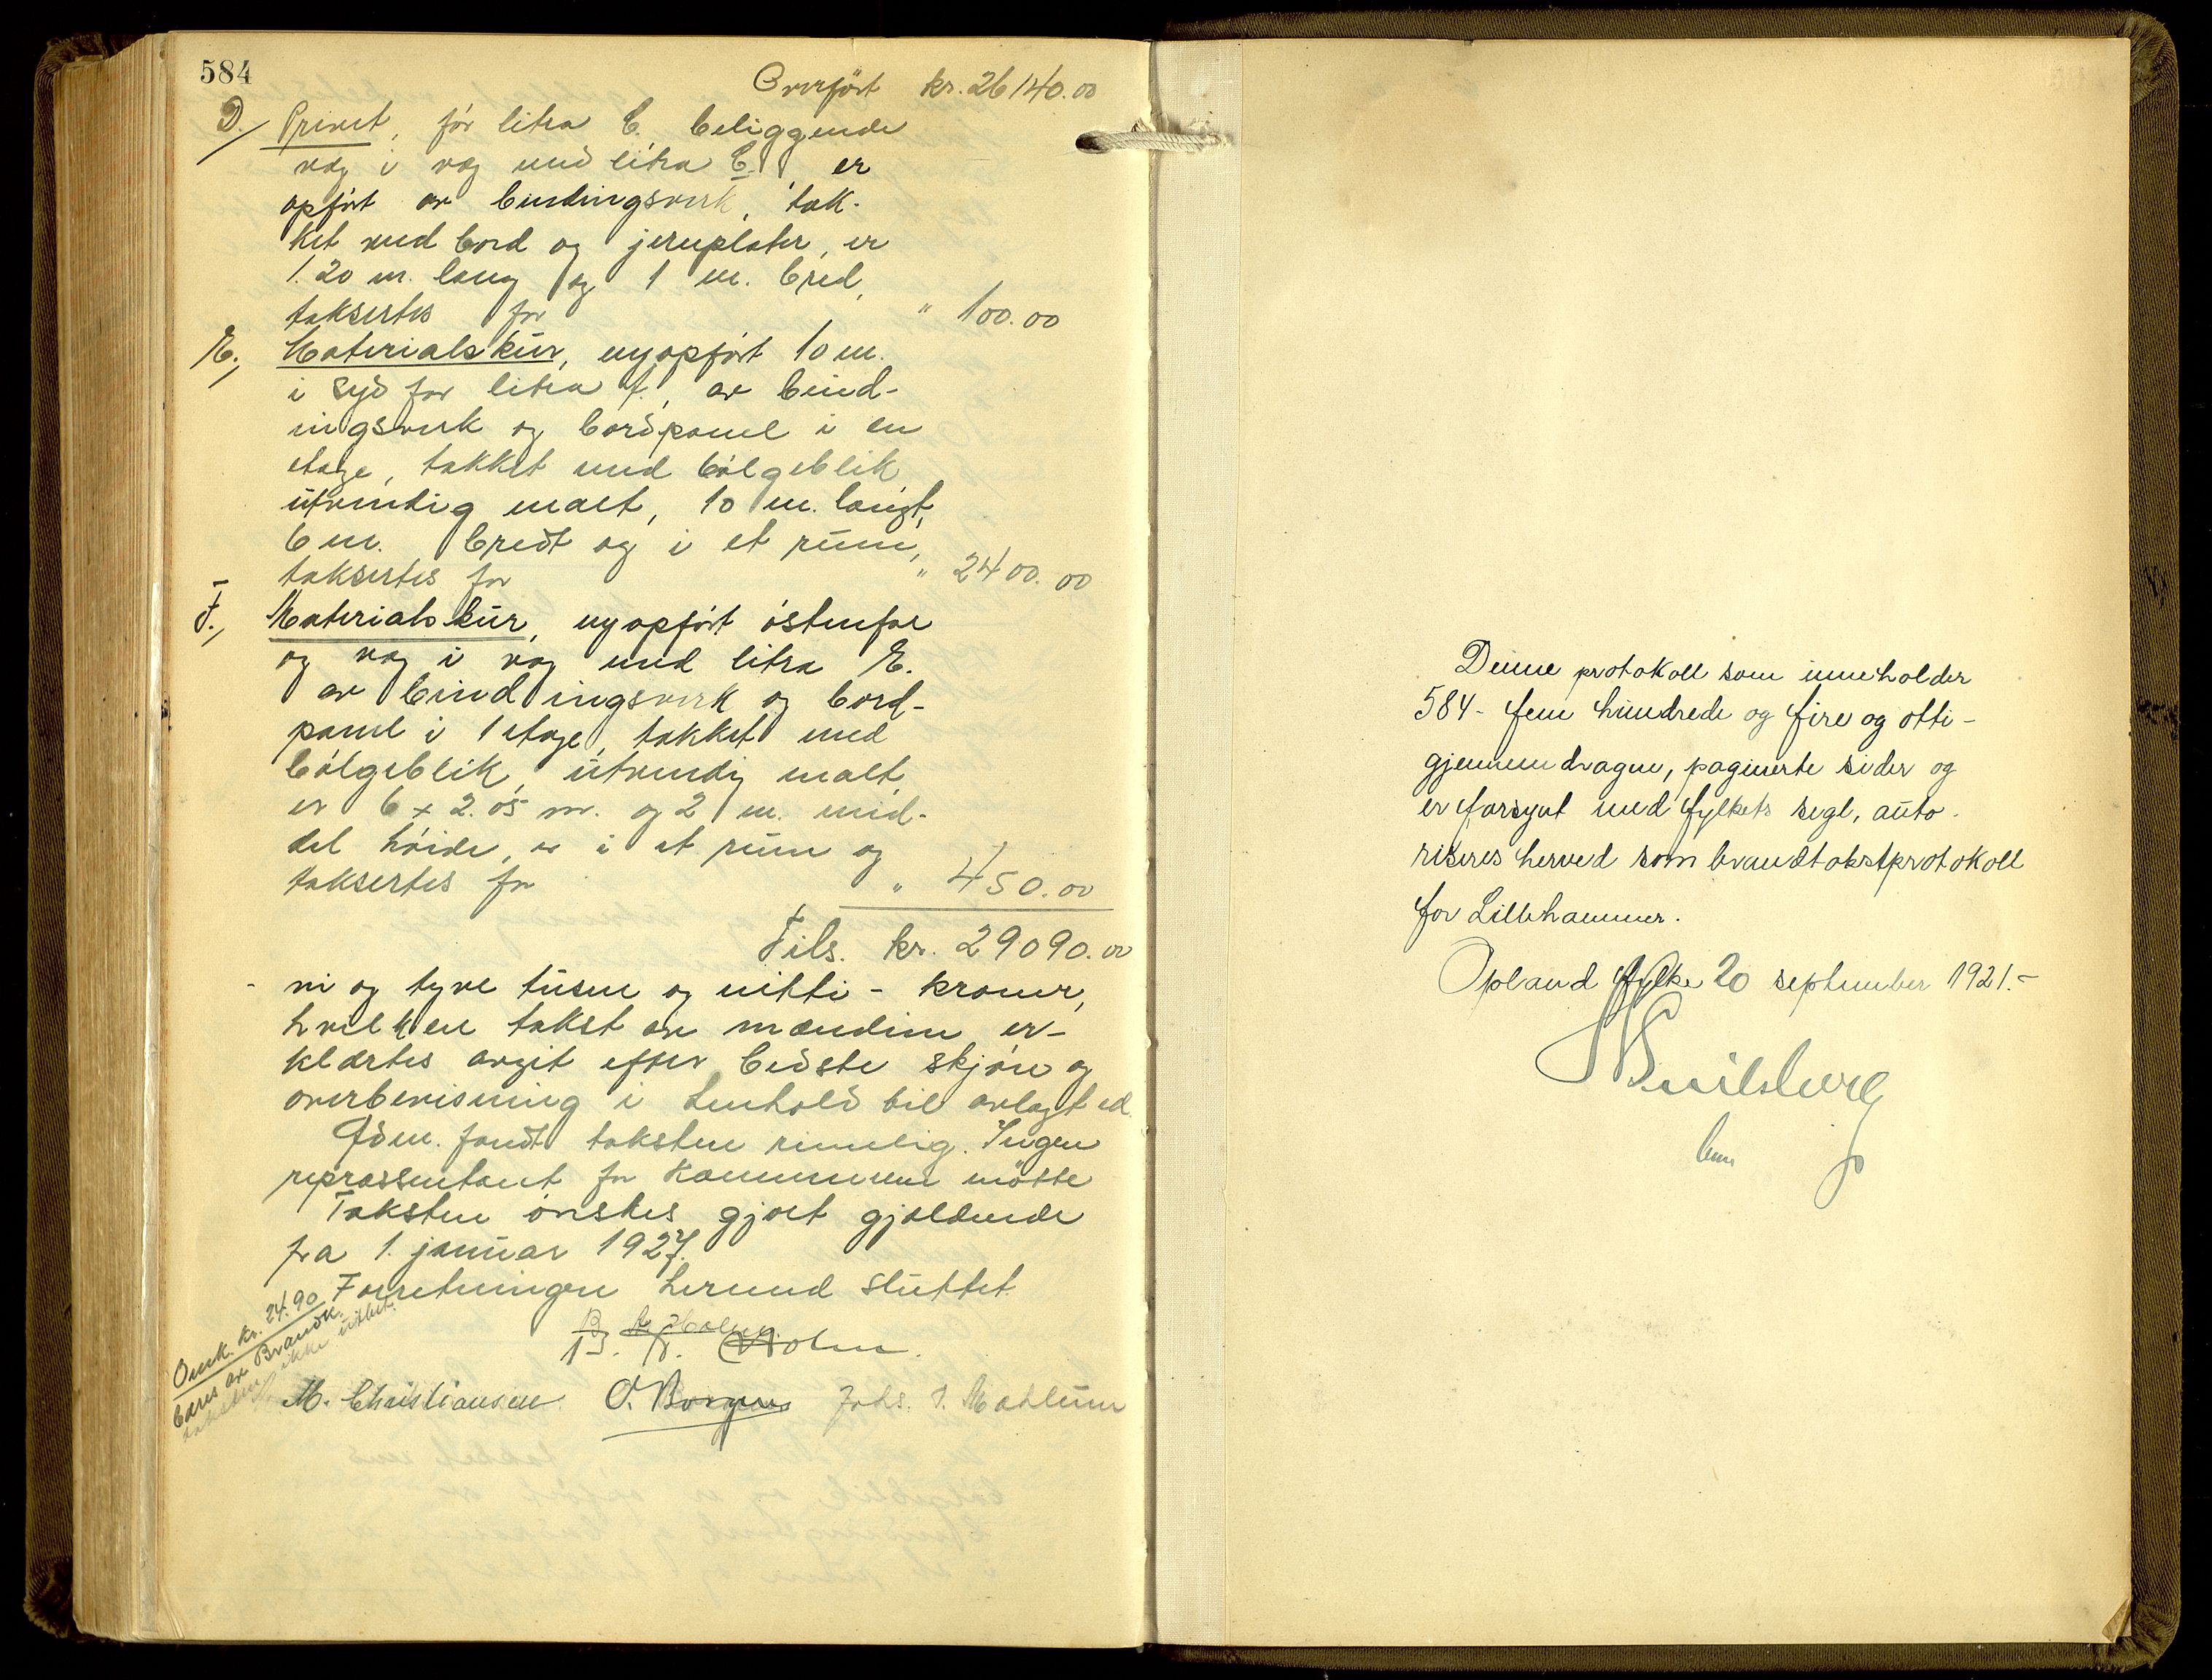 584
Overført kr. 26140.00
D./ Privet, før litra C. beliggende
væg i væg med litra C., er
opført av bindingsverk, tæk-
ket med bord og jernplater, er
1.20 m. lang og 1 m. bred,
taksertes for " 100.00
E./ Materialskur, nyopført 10 m.
i syd for litra A., av bind-
ingsverk og bordpanel i en
etage, tækket med bølgeblik
utvendig malt, 10 m. langt,
6 m. bredt og i et rum,
taksertes for " 2400.00
F./ Materialskur, nyopført østenfor
og væg i væg med litra E.
av bindingsverk og bord-
panel i 1 etage, tækket med
bølgeblik, utvendig malt,
er 6 x 2.05 m. og 2 m. mid-
del høide, er i et rum og
taksertes for " 450.00
Tils. kr. 29090.00
- ni og tyve tusen og nitti - kroner,
hvilken takst av mændene er-
klærtes avgit efter bedste skjøn og
overbevisning i henhold til avlagt ed.
Gdm. fandt taksten rimelig. Ingen
repræsentant for kommunen møtte
Taksten ønskes gjort gjældende
fra 1. januar 1927.
Forretningen hermed sluttet
Omk. kr. 24.90
bæres av Brandk.
taksten ikke utløst.
B. Holm.
M. Christiansen O. Borgen Johs. J. Mæhlum
Denne protokoll som inneholder
584 - fem hundrede og fire og otti -
gjennemdragne, paginerte sider og
er forsynt med fylkets segl, auto-
riseres herved som brandtakstprotokoll
for Lillehammer.
Opland fylke 20 september 1921.-